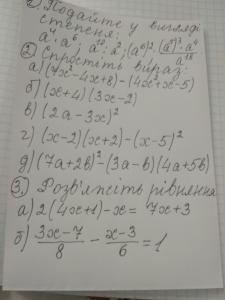 2) Подайте у вигляді
степеня:
a⁴·a⁶; a¹⁰:a²; (a⁶)²; (a⁵)³·a⁴ / a¹⁸
② Спростіть вираз:
а) (7x-4x+8)-(4x²+x-5)
б) (x+4)(3x-2)
в) (2a-3x)²
г) (x-2)(x+2)-(x-5)²
д) (7a+2b)²-(3a-b)(4a+5b)
③ Розв'яжіть рівняння
а) 2(4x+1)-x= 7x+3
б) (3x-7)/8 - (x-3)/6 = 1